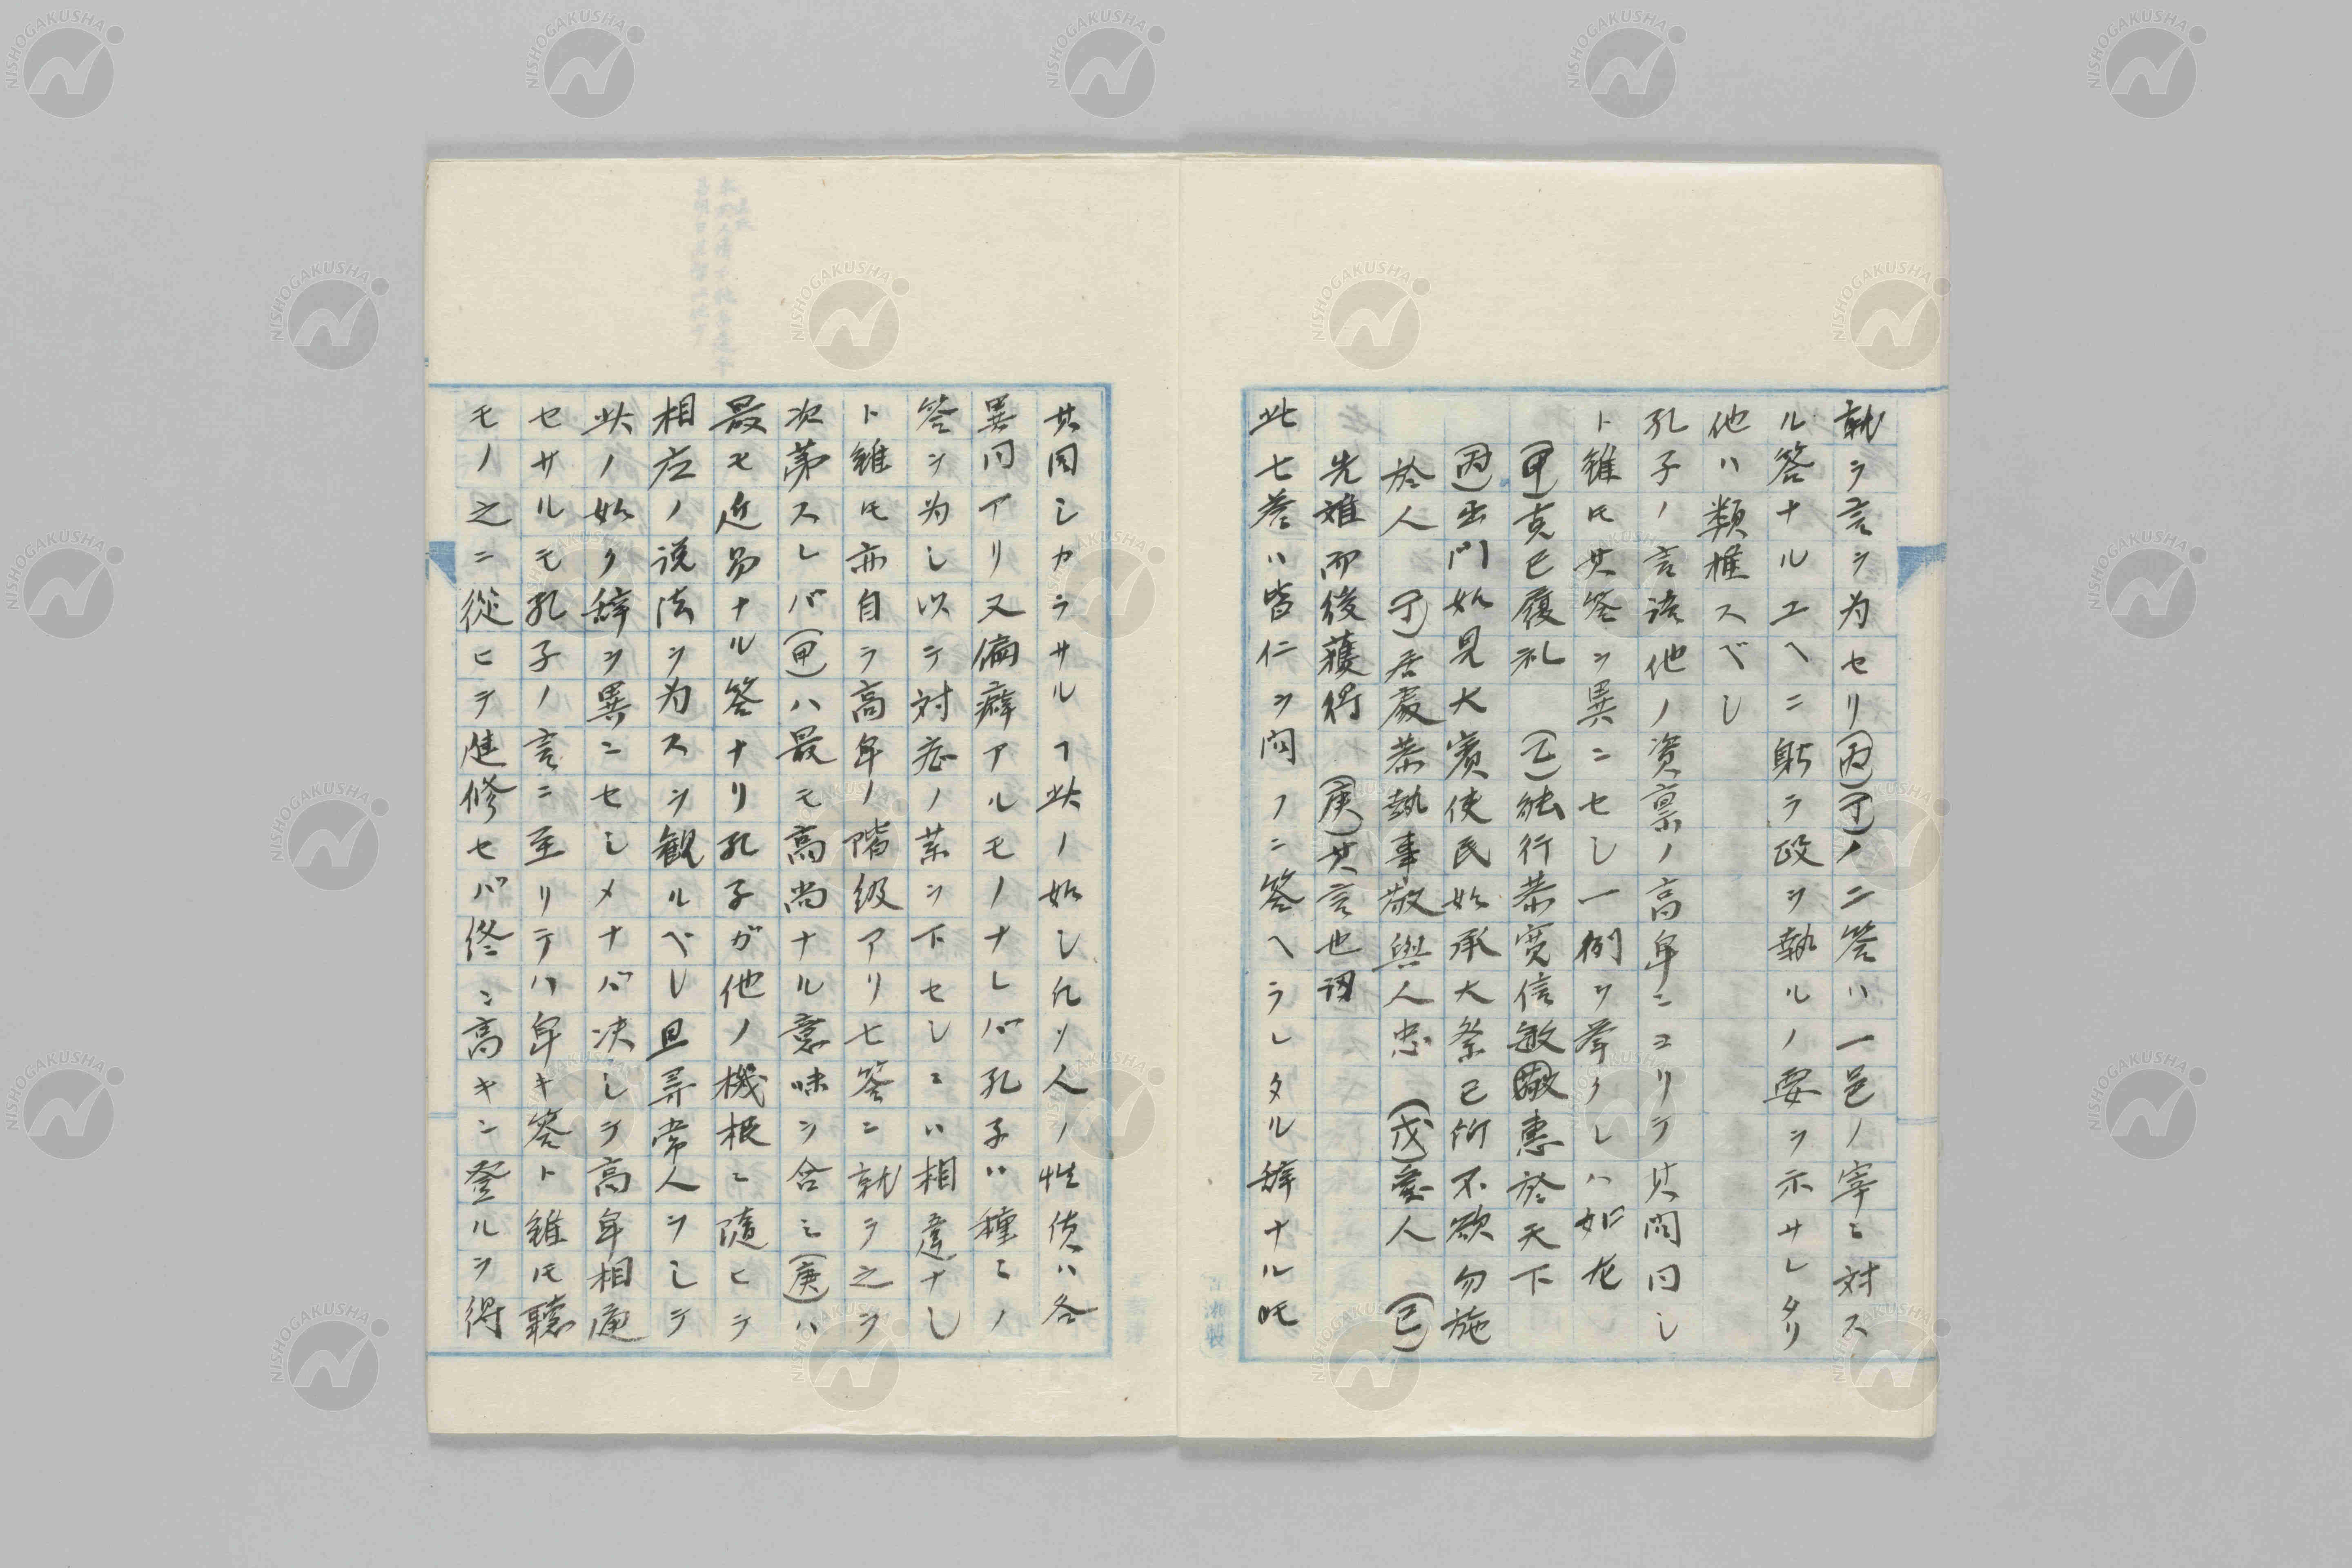 就ラ言ヲ为セリ(丙)(丁)ノニ答ハ一邑ノ宰ニ対ス
ル答ナルエヘニ躬ラ政ヲ執ルノ要ヲ示サレタリ
他ハ類推スベシ
孔子ノ言語他ノ資稟ノ高卑ニヨリテ其問同シ
ト雖圧其答ヲ異ニセシ一例ヲ挙クレハ如左
(甲)克己履礼 (乙)能行恭寛信敏敬惠於天下
(丙)出門如見大賓使民如承大祭己所不欲勿施
於人 (丁)居處恭執事敬與人忠 (戊)愛人 (己)
先難而後獲得 (庚)其言也訒
此七答ハ皆仁ヲ問フニ答ヘラレタル辞ナル圧
其同シカラサルヿ此ノ如シ凡ソ人ノ性質ハ各
異同アリ又偏癖アルモノナレバ孔子ハ種ミノ
答ヲ为シ以テ対症ノ薬ヲ下セシニハ相違ナシ
ト雖圧亦自ラ高卑ノ階級アリ七答ニ就ラ之ヲ
次第スレバ(甲)ハ最モ高尚ナル意味ヲ含ミ(庚)ハ
最モ近易ナル答ナリ孔子ガ他ノ機根ニ隨ヒテ
相応ノ説法ヲ为スヲ観ルベシ且尋常人ヲシテ
此ノ如ク辞ヲ異ニセシメナバ决シテ高卑相応
セサルモ孔子ノ言ニ至リテハ卑キ答ト雖圧聽
モノ之ニ從ヒテ進修セバ終ニ高キニ登ルヲ得